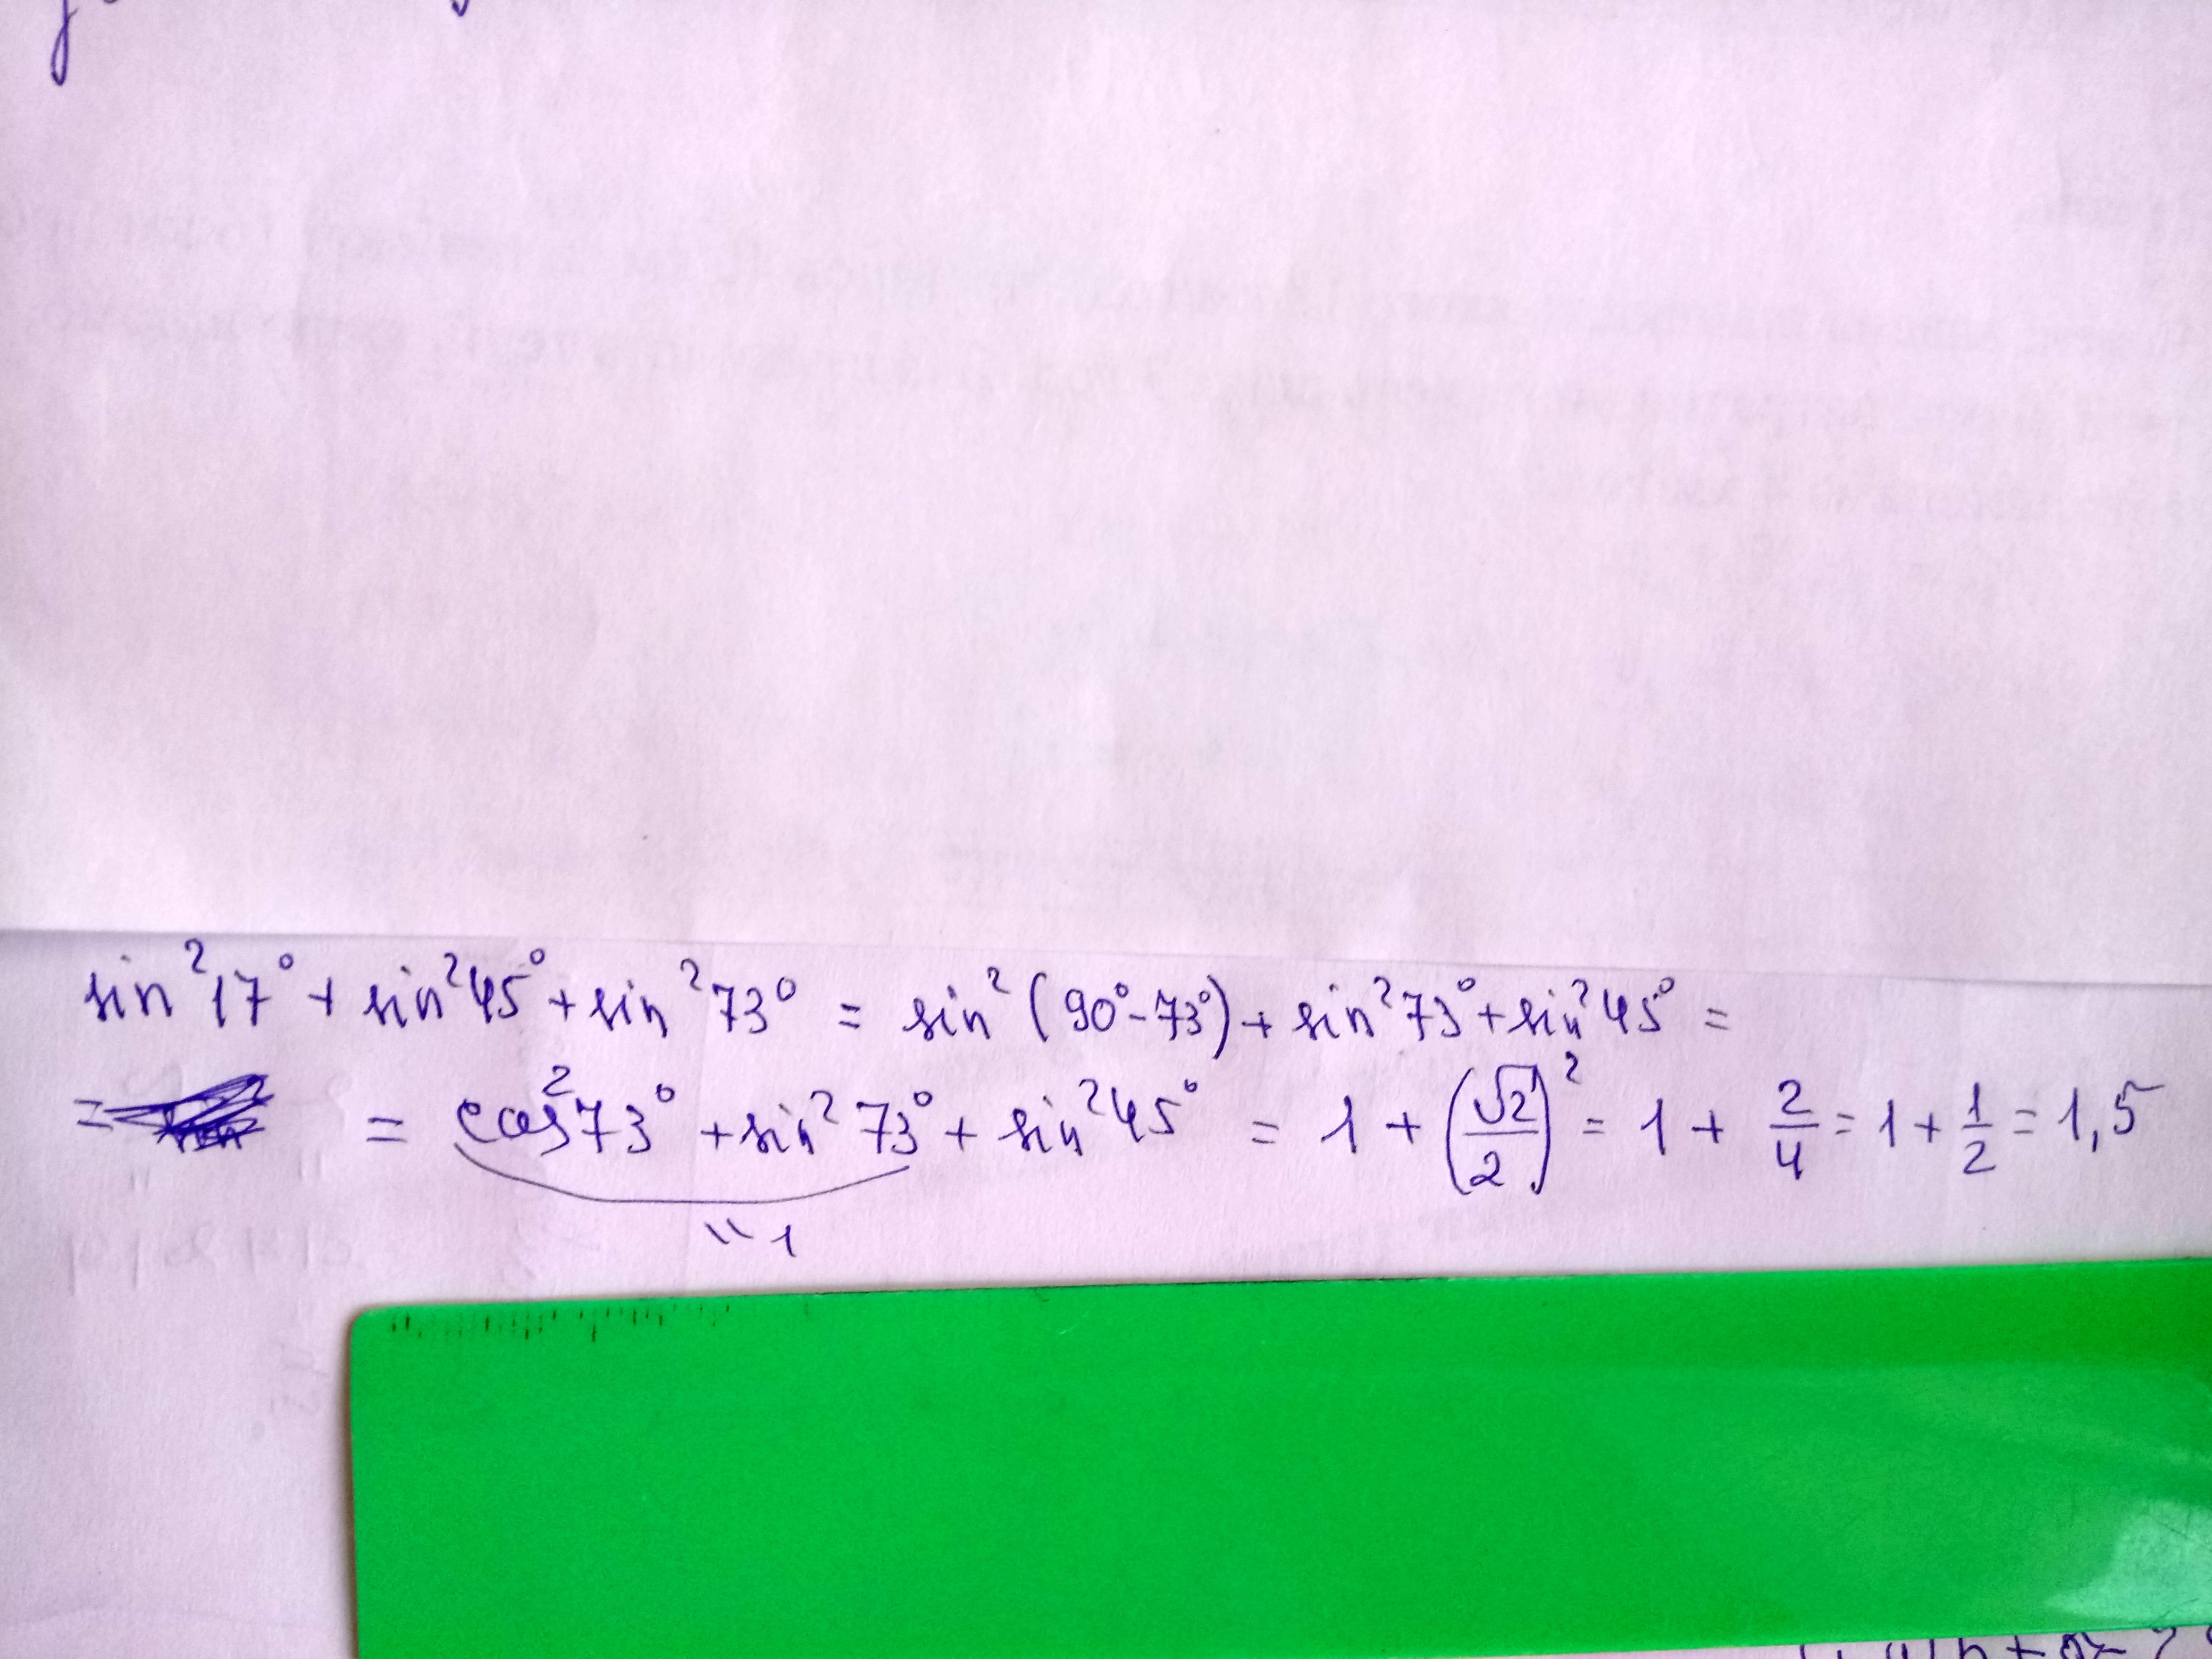 sin²17° + sin²45° + sin²73° = sin²(90°-73°) + sin²73° + sin²45° =
= = cos²73° + sin²73° + sin²45° = 1 + (√2/2)² = 1 + 2/4 = 1 + 1/2 = 1,5
"1